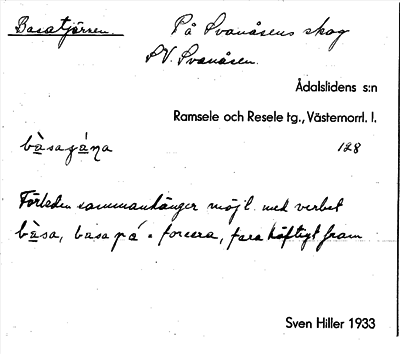 Basatjärnen. På Svanåsens skog
SV. Svanåsen.
Ådalslidens s:n
Ramsele och Resele tg., Västernorrl. l.
bàsagána 128
Förleden sammanhänger möjl. med verbet
bàsa, basa på = forcera, fara häftigt fram
Sven Hiller 1933